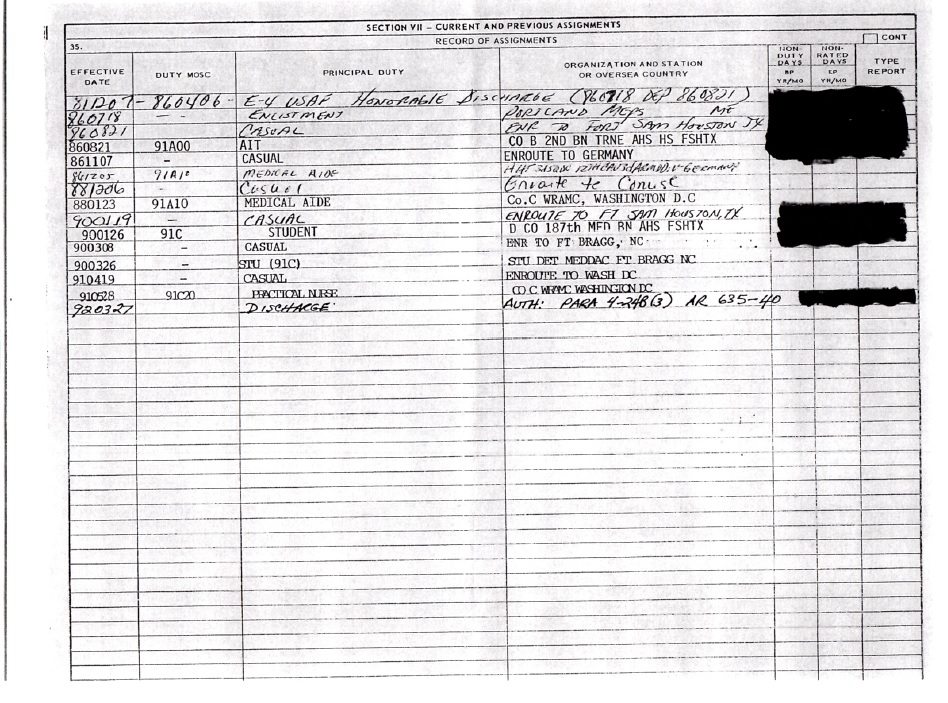 SECTION VII – CURRENT AND PREVIOUS ASSIGNMENTS
35. RECORD OF ASSIGNMENTS CONT
EFFECTIVE DATE DUTY MOSC PRINCIPAL DUTY ORGANIZATION AND STATION OR OVERSEA COUNTRY NON-DUTY DAYS NON-RATED DAYS TYPE REPORT
YR/MO YR/MO
811207-860406- E-4 USAF HONORABLE DISCHARGE (860718 DEP 860821)
860718 -- ENLISTMENT PORTLAND MEPS ME
860821 CASUAL ENR TO FORT SAM HOUSTON TX
860821 91A00 AIT CO B 2ND BN TRNE AHS HS FSHTX
861107 – CASUAL ENROUTE TO GERMANY
861205 91A10 MEDICAL AIDE Germany
881206 - Casual Enroute to Conus
880123 91A10 MEDICAL AIDE Co.C WRAMC, WASHINGTON D.C
900119 – CASUAL ENROUTE TO FT SAM HOUSTON, TX
900126 91C STUDENT D CO 187th MED BN AHS FSHTX
900308 – CASUAL ENR TO FT BRAGG, NC
900326 – STU (91C) STU DET MEDDAC FT BRAGG NC
910419 – CASUAL ENROUTE TO WASH DC
910528 91C20 PRACTICAL NURSE CO C WRAMC WASHINGTON DC
920327 DISCHARGE AUTH: PARA 4-24B(3) AR 635-40